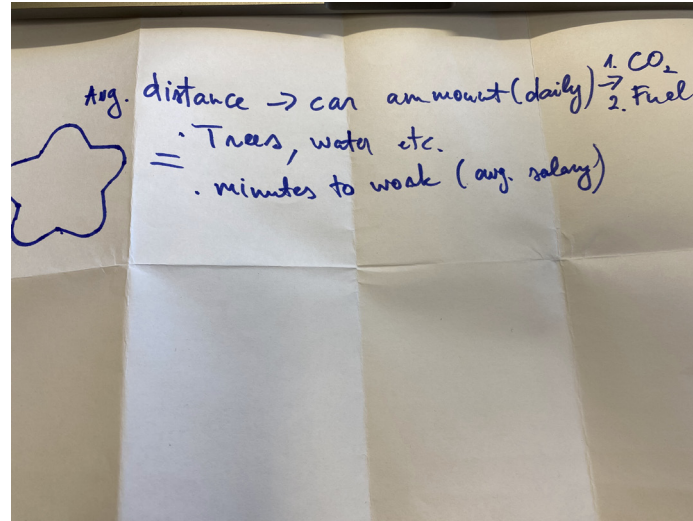 Avg. distance → car ammount (daily) → 1. CO₂
2. Fuel
= · Trees, water etc.
· minutes to work (avg. salary)